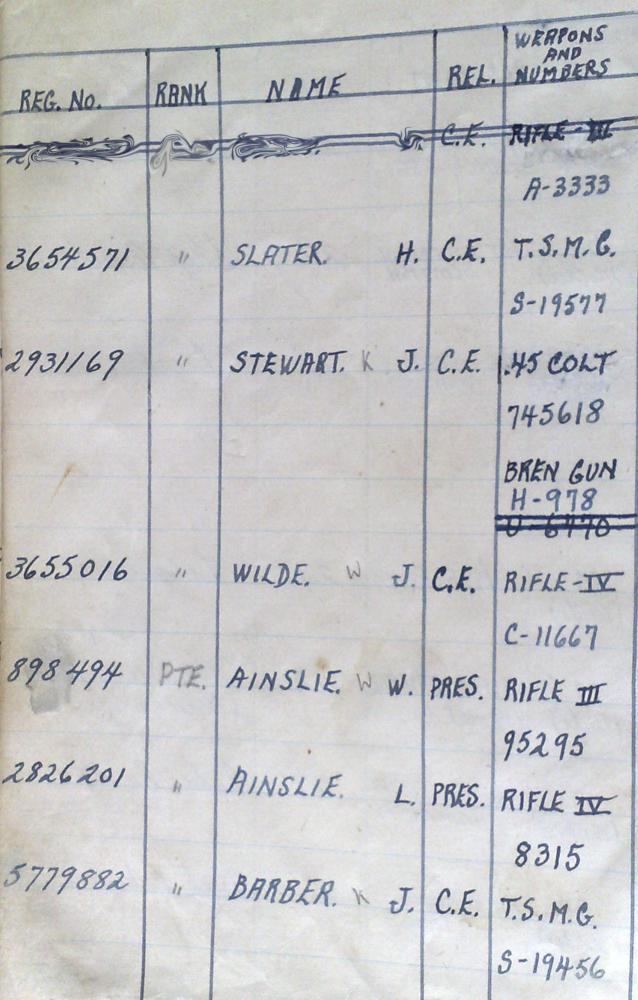 REG. No. RANK NAME REL. WEAPONS AND NUMBERS
C.E. RIFLE-III
A-3333
3654571 " SLATER. H. C.E. T.S.M.G.
S-19577
2931169 " STEWART. K J. C.E. .45 COLT
745618
BREN GUN
H-978
U-6770
3655016 " WILDE. W J. C.E. RIFLE-IV
C-11667
898494 PTE. AINSLIE. W W. PRES. RIFLE III
95295
2826201 " AINSLIE. L. PRES. RIFLE IV
8315
5779882 " BARBER. K J. C.E. T.S.M.G.
S-19456